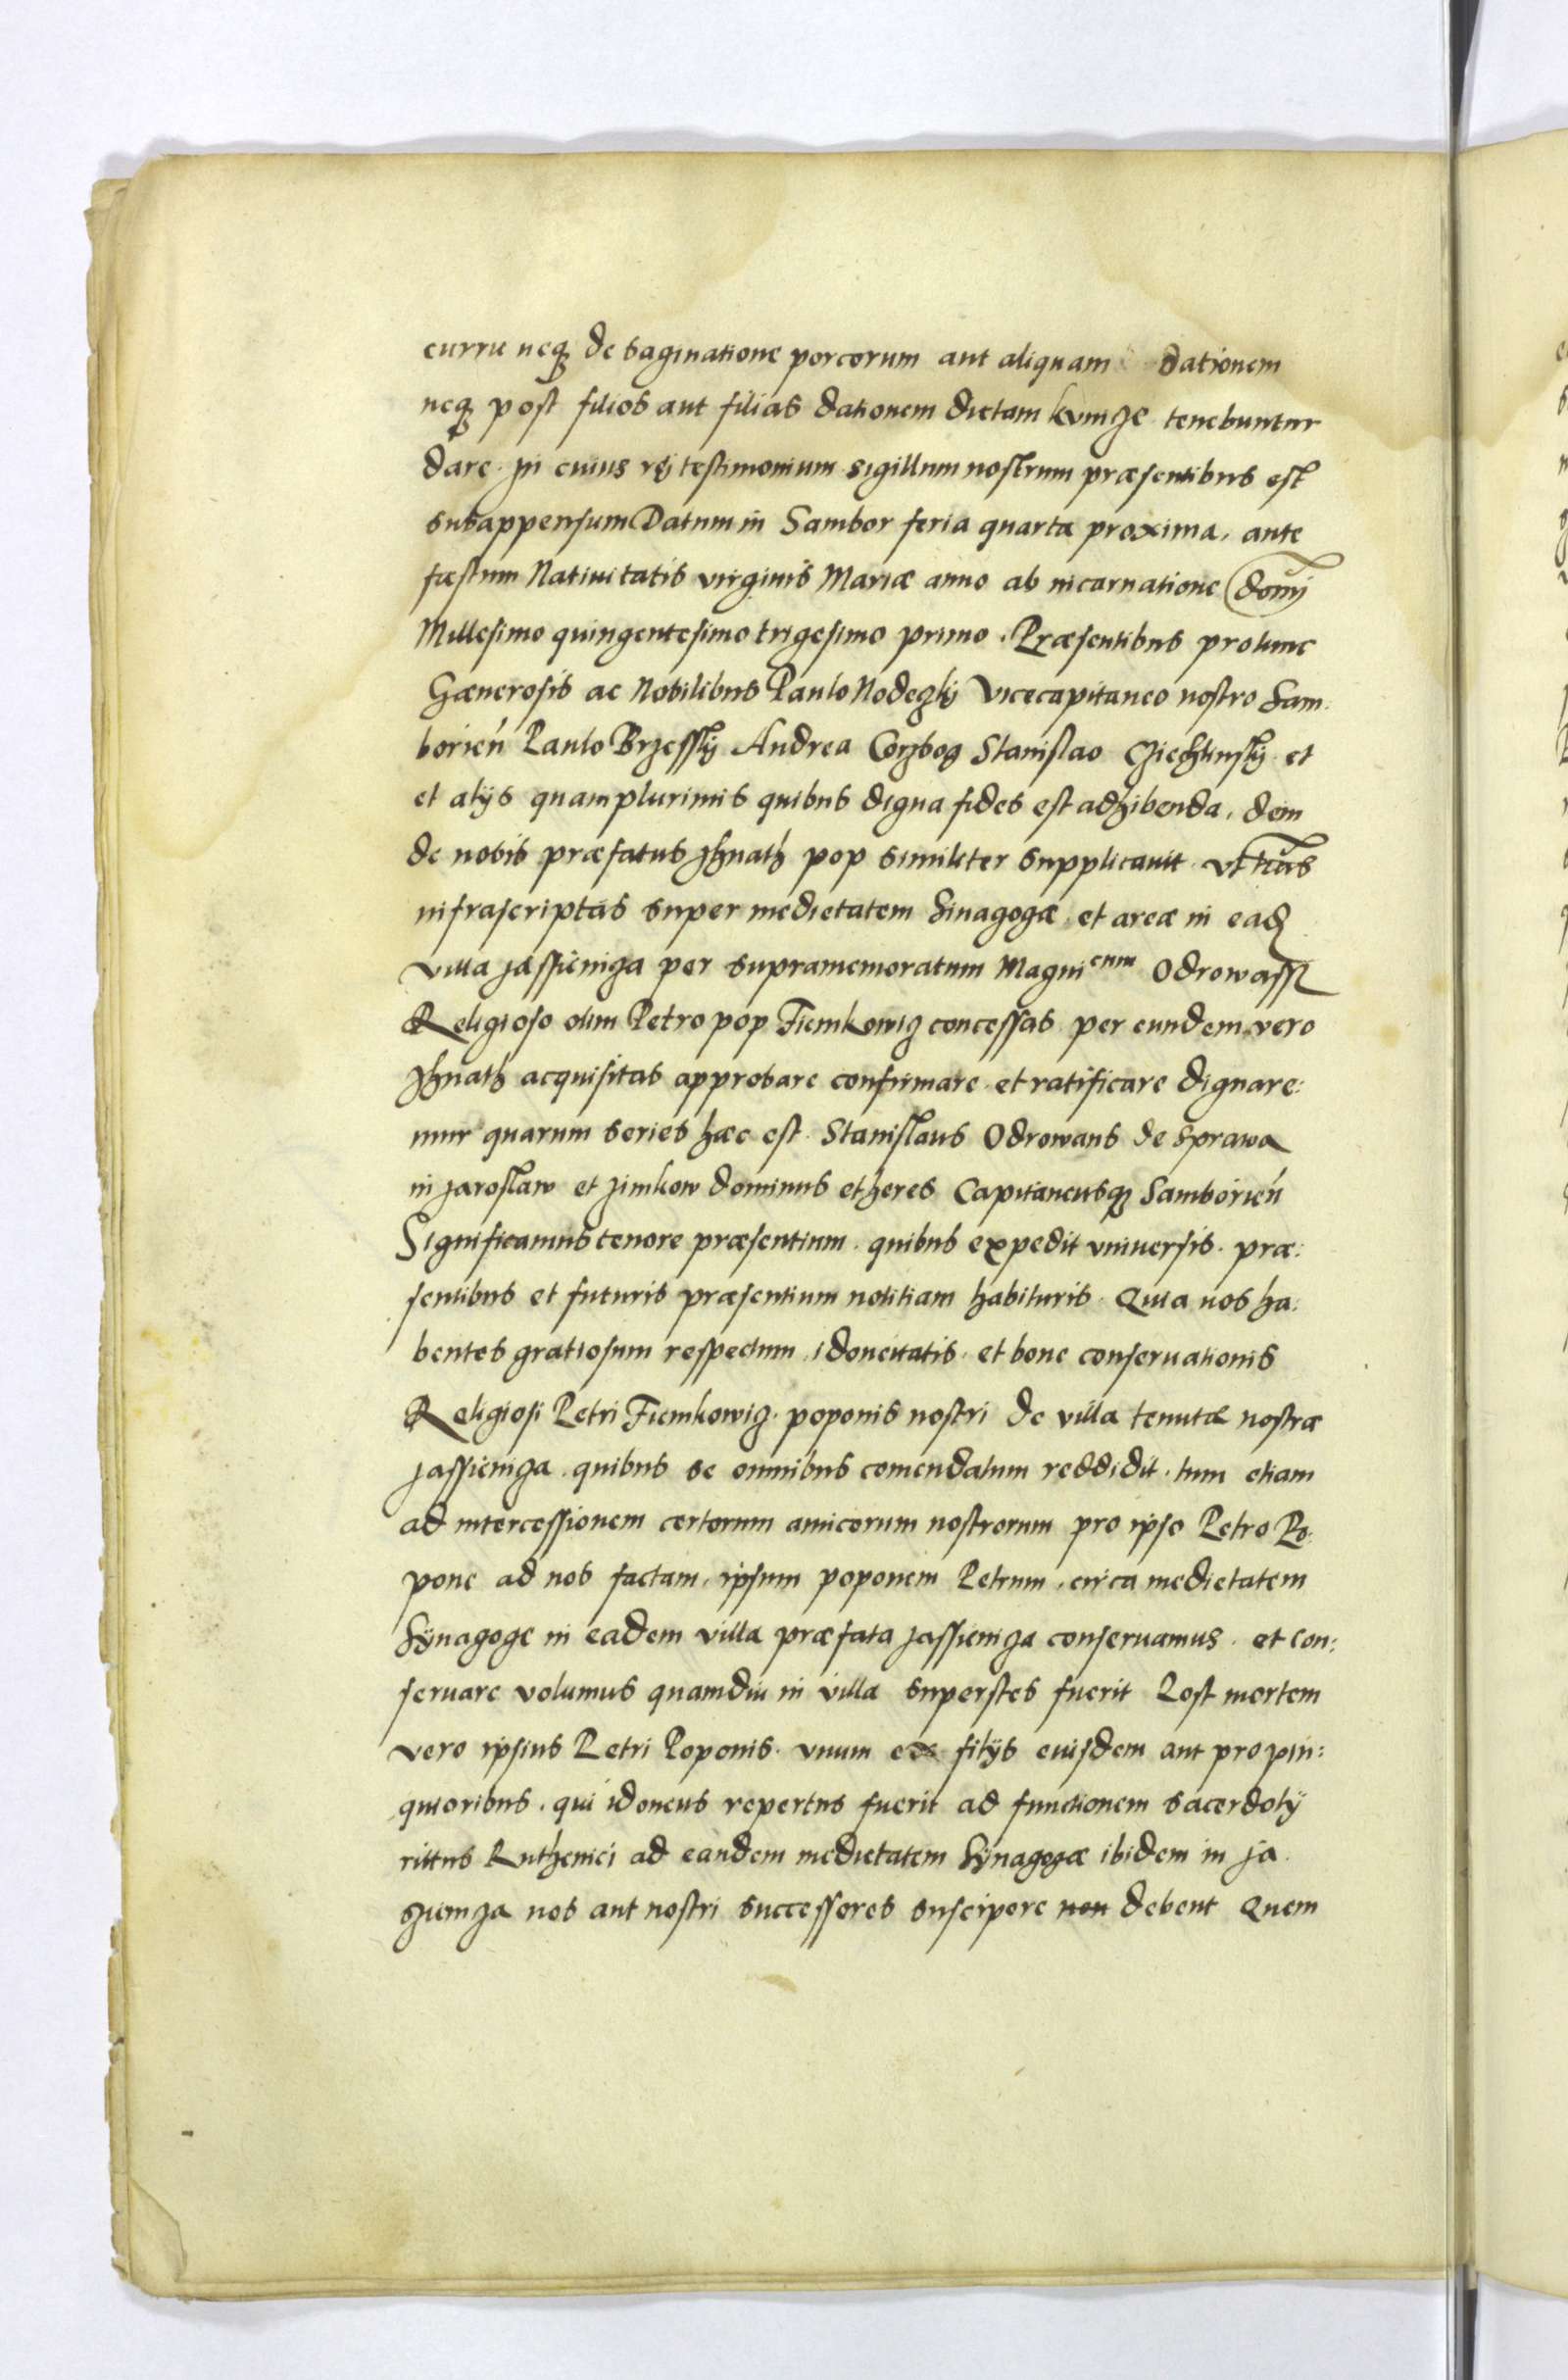 curru neq; de saginatione porcorum aut aliquam dationem
neq; post filios aut filias dationem dictam kvnize tenebuntur
dare. In cuius rei testimonium sigillum nostrum præsentibus est
subappensum Datum in Sambor feria quarta proxima, ante
fæstum Natiuitatis virginis Mariæ anno ab incarnatione domĩ
Millesimo quingentesimo trigesimo primo. Præsentibus protunc
Gænerosis ac Nobilibus Paulo Nodezky Vicecapitaneo nostro Sam:
borień Paulo Brzessky Andrea Corzbog Stanislao Cziechlinsky et
et alijs quamplurimis quibus digna fides est adhibenda, dein
de nobis præfatus Jhnath pop similiter supplicauit vt l̃ras
infrascriptas super medietatem Sinagogæ et areæ in ead
villa jassienicza per supramemoratum Magnicum Odrowassz
Religioso olim Petro pop Fiemkowicz concessas per eundem vero
Jhnath acquisitas approbare confirmare et ratificare dignare:
mur quarum series hæc est. Stanislaus Odrowans de Sprawa
in Jaroslaw et Zimkow dominus et heres Capitaneusq; Samborień
Significamus tenore præsentium. quibus expedit vniuersis. præ:
sentibus et futuris præsentium notitiam habituris. Quia nos ha:
bentes gratiosum respectum idoneitatis et bone conseruationis
Religiosi Petri Fiemkowicz. poponis nostri de villa tenutæ nostræ
jassienicza. quibus se omnibus comendatum reddidit. tum etiam
ad intercessionem certorum amicorum nostrorum pro ipso Petro Po:
pone ad nos factam, ipsum poponem Petrum, circa medietatem
Synagoge in eadem villa præfata jassienicza conseruamus. et con:
seruare volumus quamdiu in villa superstes fuerit Post mortem
vero ipsius Petri Poponis. vnum ex filijs euisdem aut propin:
quioribus, qui idoneus repertus fuerit ad functionem sacerdotij
rittus Ruthenici ad eandem medietatem Synagogæ ibidem in ja
szienicza nos aut nostri successores suscipere non debent Quem